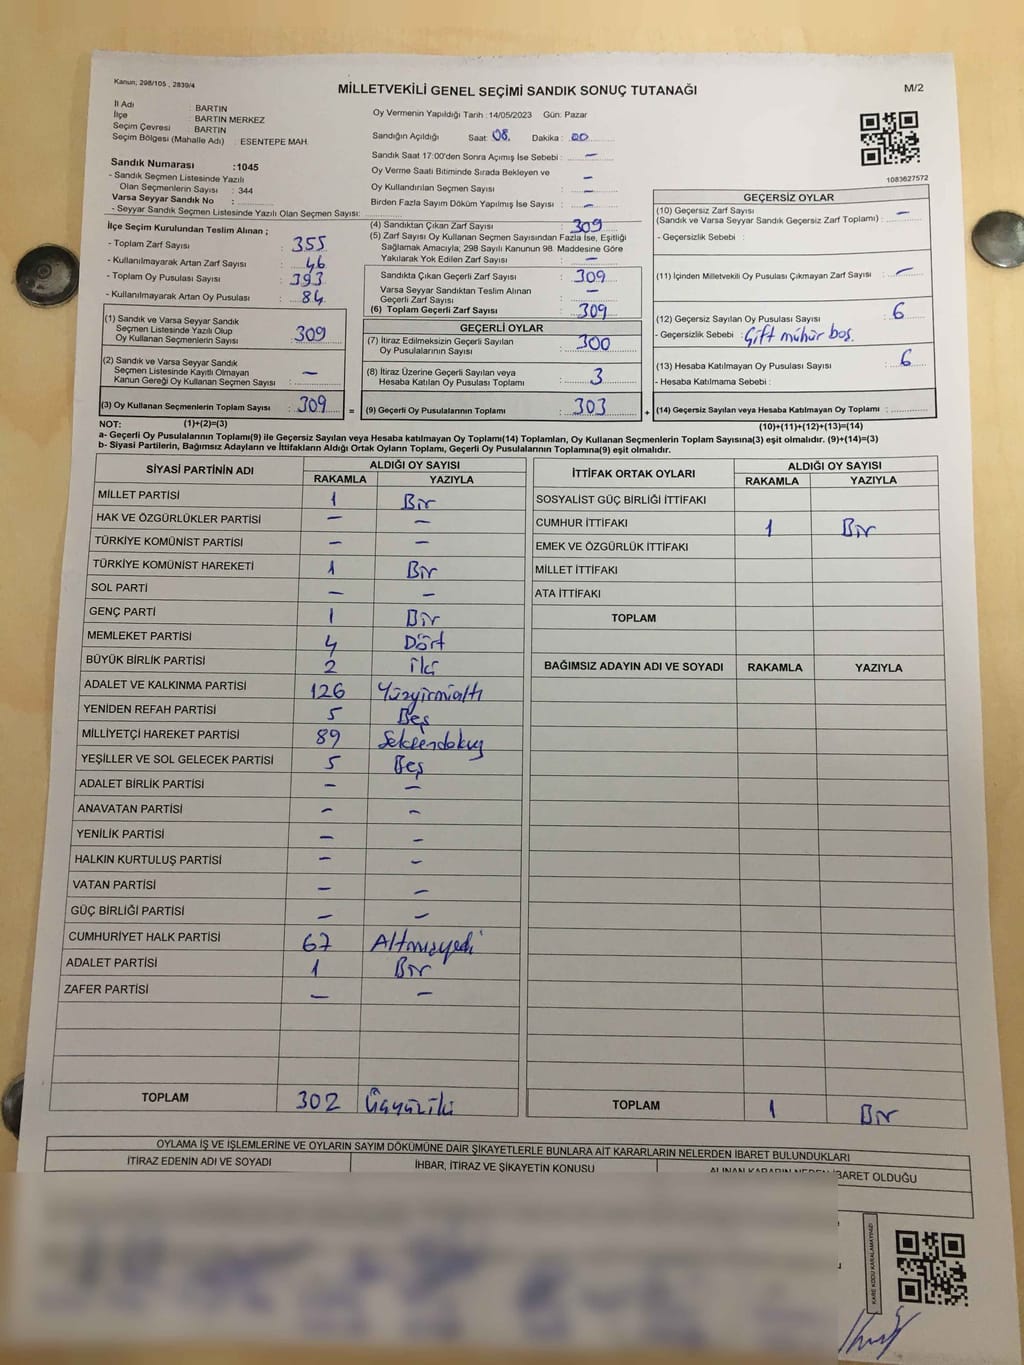 Kanun; 298/105 , 2839/4
MİLLETVEKİLİ GENEL SEÇİMİ SANDIK SONUÇ TUTANAĞI
M/2
İl Adı : BARTIN
İlçe : BARTIN MERKEZ
Seçim Çevresi : BARTIN
Seçim Bölgesi (Mahalle Adı) : ESENTEPE MAH.
Sandık Numarası :1045
- Sandık Seçmen Listesinde Yazılı
Olan Seçmenlerin Sayısı : 344
Varsa Seyyar Sandık No :
- Seyyar Sandık Seçmen Listesinde Yazılı Olan Seçmen Sayısı:
Oy Vermenin Yapıldığı Tarih :14/05/2023 Gün: Pazar
Sandığın Açıldığı Saat: 08. Dakika : 00
Sandık Saat 17:00'den Sonra Açımış İse Sebebi : –
Oy Verme Saati Bitiminde Sırada Bekleyen ve –
Oy Kullandırılan Seçmen Sayısı : –
Birden Fazla Sayım Döküm Yapılmış İse Sayısı : –
1083627572
İlçe Seçim Kurulundan Teslim Alınan ;
- Toplam Zarf Sayısı : 355
- Kullanılmayarak Artan Zarf Sayısı : 46
- Toplam Oy Pusulası Sayısı : 393
- Kullanılmayarak Artan Oy Pusulası : 84
(1) Sandık ve Varsa Seyyar Sandık
Seçmen Listesinde Yazılı Olup
Oy Kullanan Seçmenlerin Sayısı : 309
(2) Sandık ve Varsa Seyyar Sandık
Seçmen Listesinde Kayıtlı Olmayan
Kanun Gereği Oy Kullanan Seçmen Sayısı : –
(3) Oy Kullanan Seçmenlerin Toplam Sayısı : 309 =
(4) Sandıktan Çıkan Zarf Sayısı : 309
(5) Zarf Sayısı Oy Kullanan Seçmen Sayısından Fazla İse, Eşitliği
Sağlamak Amacıyla; 298 Sayılı Kanunun 98. Maddesine Göre
Yakılarak Yok Edilen Zarf Sayısı : –
Sandıkta Çıkan Geçerli Zarf Sayısı : 309
Varsa Seyyar Sandıktan Teslim Alınan
Geçerli Zarf Sayısı : –
(6) Toplam Geçerli Zarf Sayısı : 309
GEÇERLİ OYLAR
(7) İtiraz Edilmeksizin Geçerli Sayılan
Oy Pusulalarının Sayısı : 300
(8) İtiraz Üzerine Geçerli Sayılan veya
Hesaba Katılan Oy Pusulası Toplamı : 3
(9) Geçerli Oy Pusulalarının Toplamı : 303 +
GEÇERSİZ OYLAR
(10) Geçersiz Zarf Sayısı
(Sandık ve Varsa Seyyar Sandık Geçersiz Zarf Toplamı) : –
- Geçersizlik Sebebi :
(11) İçinden Milletvekili Oy Pusulası Çıkmayan Zarf Sayısı : –
(12) Geçersiz Sayılan Oy Pusulası Sayısı : 6
- Geçersizlik Sebebi : Çift mühür boş.
(13) Hesaba Katılmayan Oy Pusulası Sayısı : 6
- Hesaba Katılmama Sebebi :
(14) Geçersiz Sayılan veya Hesaba Katılmayan Oy Toplamı :
NOT: (1)+(2)=(3) (10)+(11)+(12)+(13)=(14)
a- Geçerli Oy Pusulalarının Toplamı(9) ile Geçersiz Sayılan veya Hesaba katılmayan Oy Toplamı(14) Toplamları, Oy Kullanan Seçmenlerin Toplam Sayısına(3) eşit olmalıdır. (9)+(14)=(3)
b- Siyasi Partilerin, Bağımsız Adayların ve İttifakların Aldığı Ortak Oyların Toplamı, Geçerli Oy Pusulalarının Toplamına(9) eşit olmalıdır.
SİYASİ PARTİNİN ADI ALDIĞI OY SAYISI
RAKAMLA YAZIYLA
MİLLET PARTİSİ 1 Bir
HAK VE ÖZGÜRLÜKLER PARTİSİ – –
TÜRKİYE KOMÜNİST PARTİSİ – –
TÜRKİYE KOMÜNİST HAREKETİ 1 Bir
SOL PARTİ – –
GENÇ PARTİ 1 Bir
MEMLEKET PARTİSİ 4 Dört
BÜYÜK BİRLİK PARTİSİ 2 iki
ADALET VE KALKINMA PARTİSİ 126 Yüzyirmialtı
YENİDEN REFAH PARTİSİ 5 Beş
MİLLİYETÇİ HAREKET PARTİSİ 89 Seksendokuz
YEŞİLLER VE SOL GELECEK PARTİSİ 5 Beş
ADALET BİRLİK PARTİSİ – –
ANAVATAN PARTİSİ – –
YENİLİK PARTİSİ – –
HALKIN KURTULUŞ PARTİSİ – –
VATAN PARTİSİ – –
GÜÇ BİRLİĞİ PARTİSİ – –
CUMHURİYET HALK PARTİSİ 67 Altmışyedi
ADALET PARTİSİ 1 Bir
ZAFER PARTİSİ – –
TOPLAM 302 Üçyüziki
İTTİFAK ORTAK OYLARI ALDIĞI OY SAYISI
RAKAMLA YAZIYLA
SOSYALİST GÜÇ BİRLİĞİ İTTİFAKI
CUMHUR İTTİFAKI 1 Bir
EMEK VE ÖZGÜRLÜK İTTİFAKI
MİLLET İTTİFAKI
ATA İTTİFAKI
TOPLAM
BAĞIMSIZ ADAYIN ADI VE SOYADI RAKAMLA YAZIYLA
TOPLAM 1 Bir
OYLAMA İŞ VE İŞLEMLERİNE VE OYLARIN SAYIM DÖKÜMÜNE DAİR ŞİKAYETLERLE BUNLARA AİT KARARLARIN NELERDEN İBARET BULUNDUKLARI
İTİRAZ EDENİN ADI VE SOYADI İHBAR, İTİRAZ VE ŞİKAYETİN KONUSU ALINAN KARARIN NEDEN İBARET OLDUĞU
KARE KODU KARALAMAYINIZ!